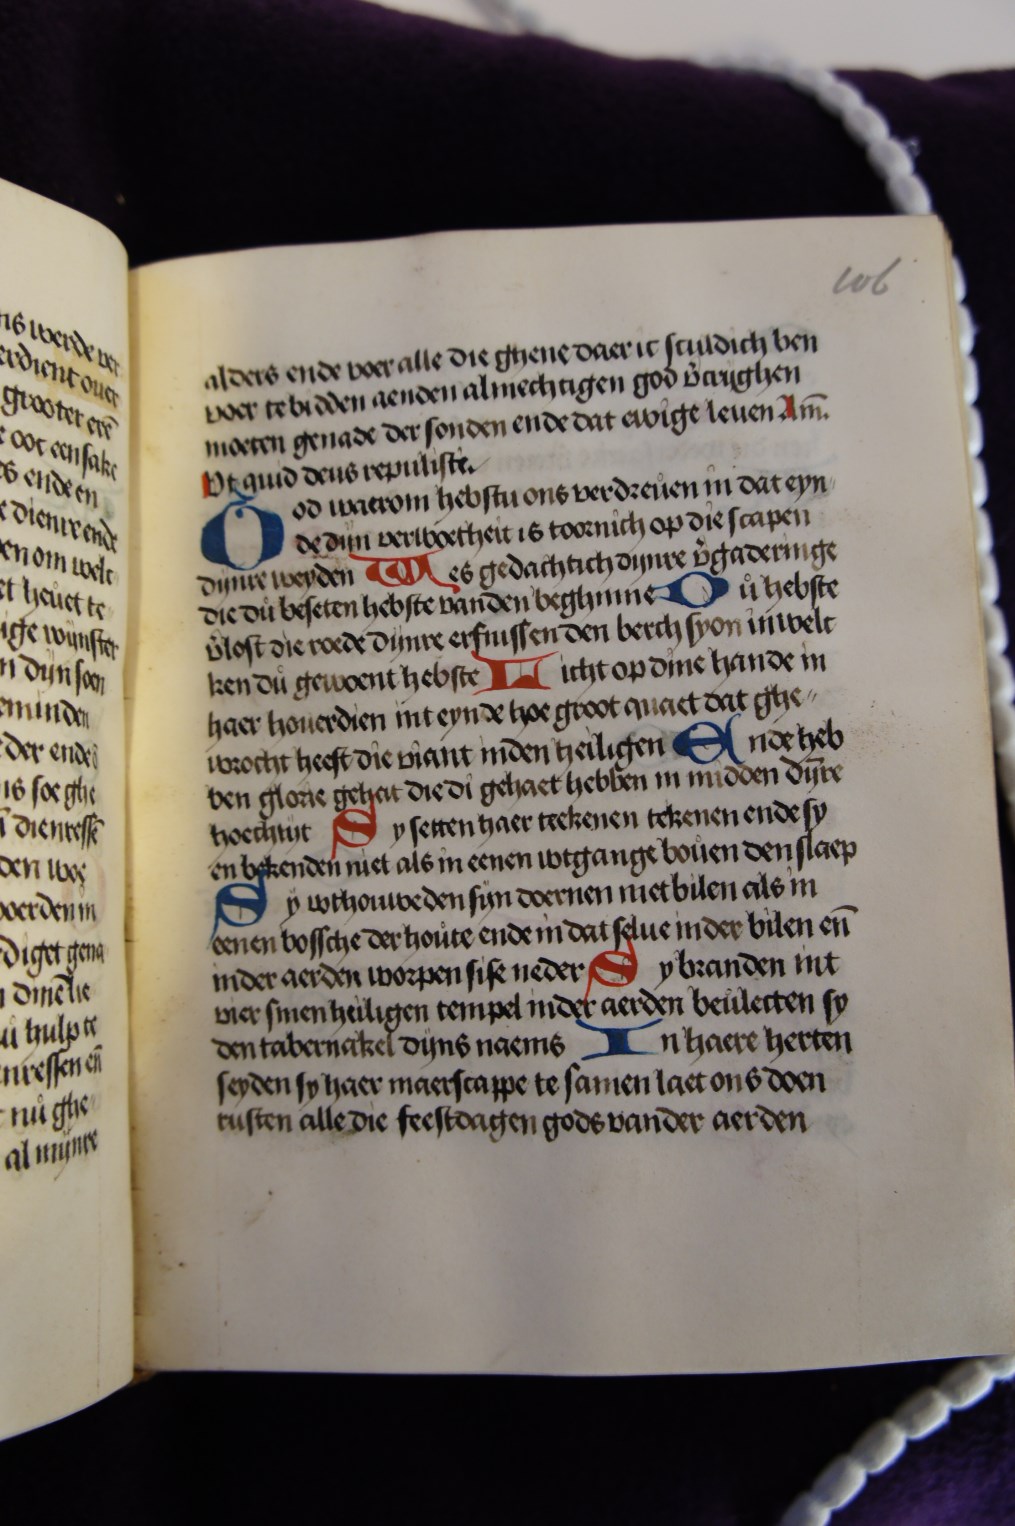 106
alders ende voer alle die ghene daer ic sculdich ben
voer te bidden aenden almechtigen god v̄crighen
moeten genade der sonden ende dat ewige leuen Am̄.
Vt quid deus repuliste.
God waerom hebstu ons verdreuen in dat eyn
de dijn verwoetheit is toornich op die scapen
dijnre weyden Wes gedachtich dijnre v̄gaderinge
die dů beseten hebste vanden beghinne Dů hebste
v̄lost die roede dijnre erfnissen den berch syon in welc
ken dů gewoent hebste Licht op dine hande in
haer houerdien int eynde hoe groot quaet dat ghe〃
wrocht heeft die viant inden heiligen Ende heb
ben glorie gehat die di gehaet hebben in midden dijre
hoechtijt Sy setten haer teekenen tekenen ende sy
en bekenden niet als in eenen wtgange bouen den slaep
Sy wthouweden sijn doernen met bilen als in
eenen bossche der houte ende in dat selue inder bilen en̄
inder aerden worpen sise neder Sy branden int
vier sinen heiligen tempel inder aerden beulecten sy
den tabernakel dijns naems In haere herten
seyden sy haer maerscappe te samen laet ons doen
rusten alle die feestdagen gods vander aerden